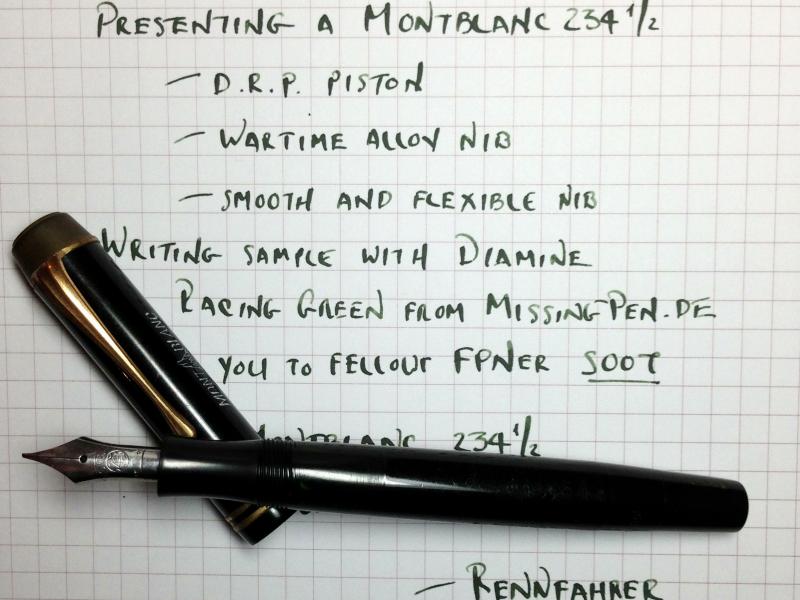 PRESENTING A MONTBLANC 234 1/2
— D.R.P. PISTON
— WARTIME ALLOY NIB
— SMOOTH AND FLEXIBLE NIB
WRITING SAMPLE WITH DIAMINE
RACING GREEN FROM MISSING-PEN.DE
YOU TO FELLOW FPNER SOOT
MONTBLANC 234 1/2
— RENNFAHRER
MONTBLANC